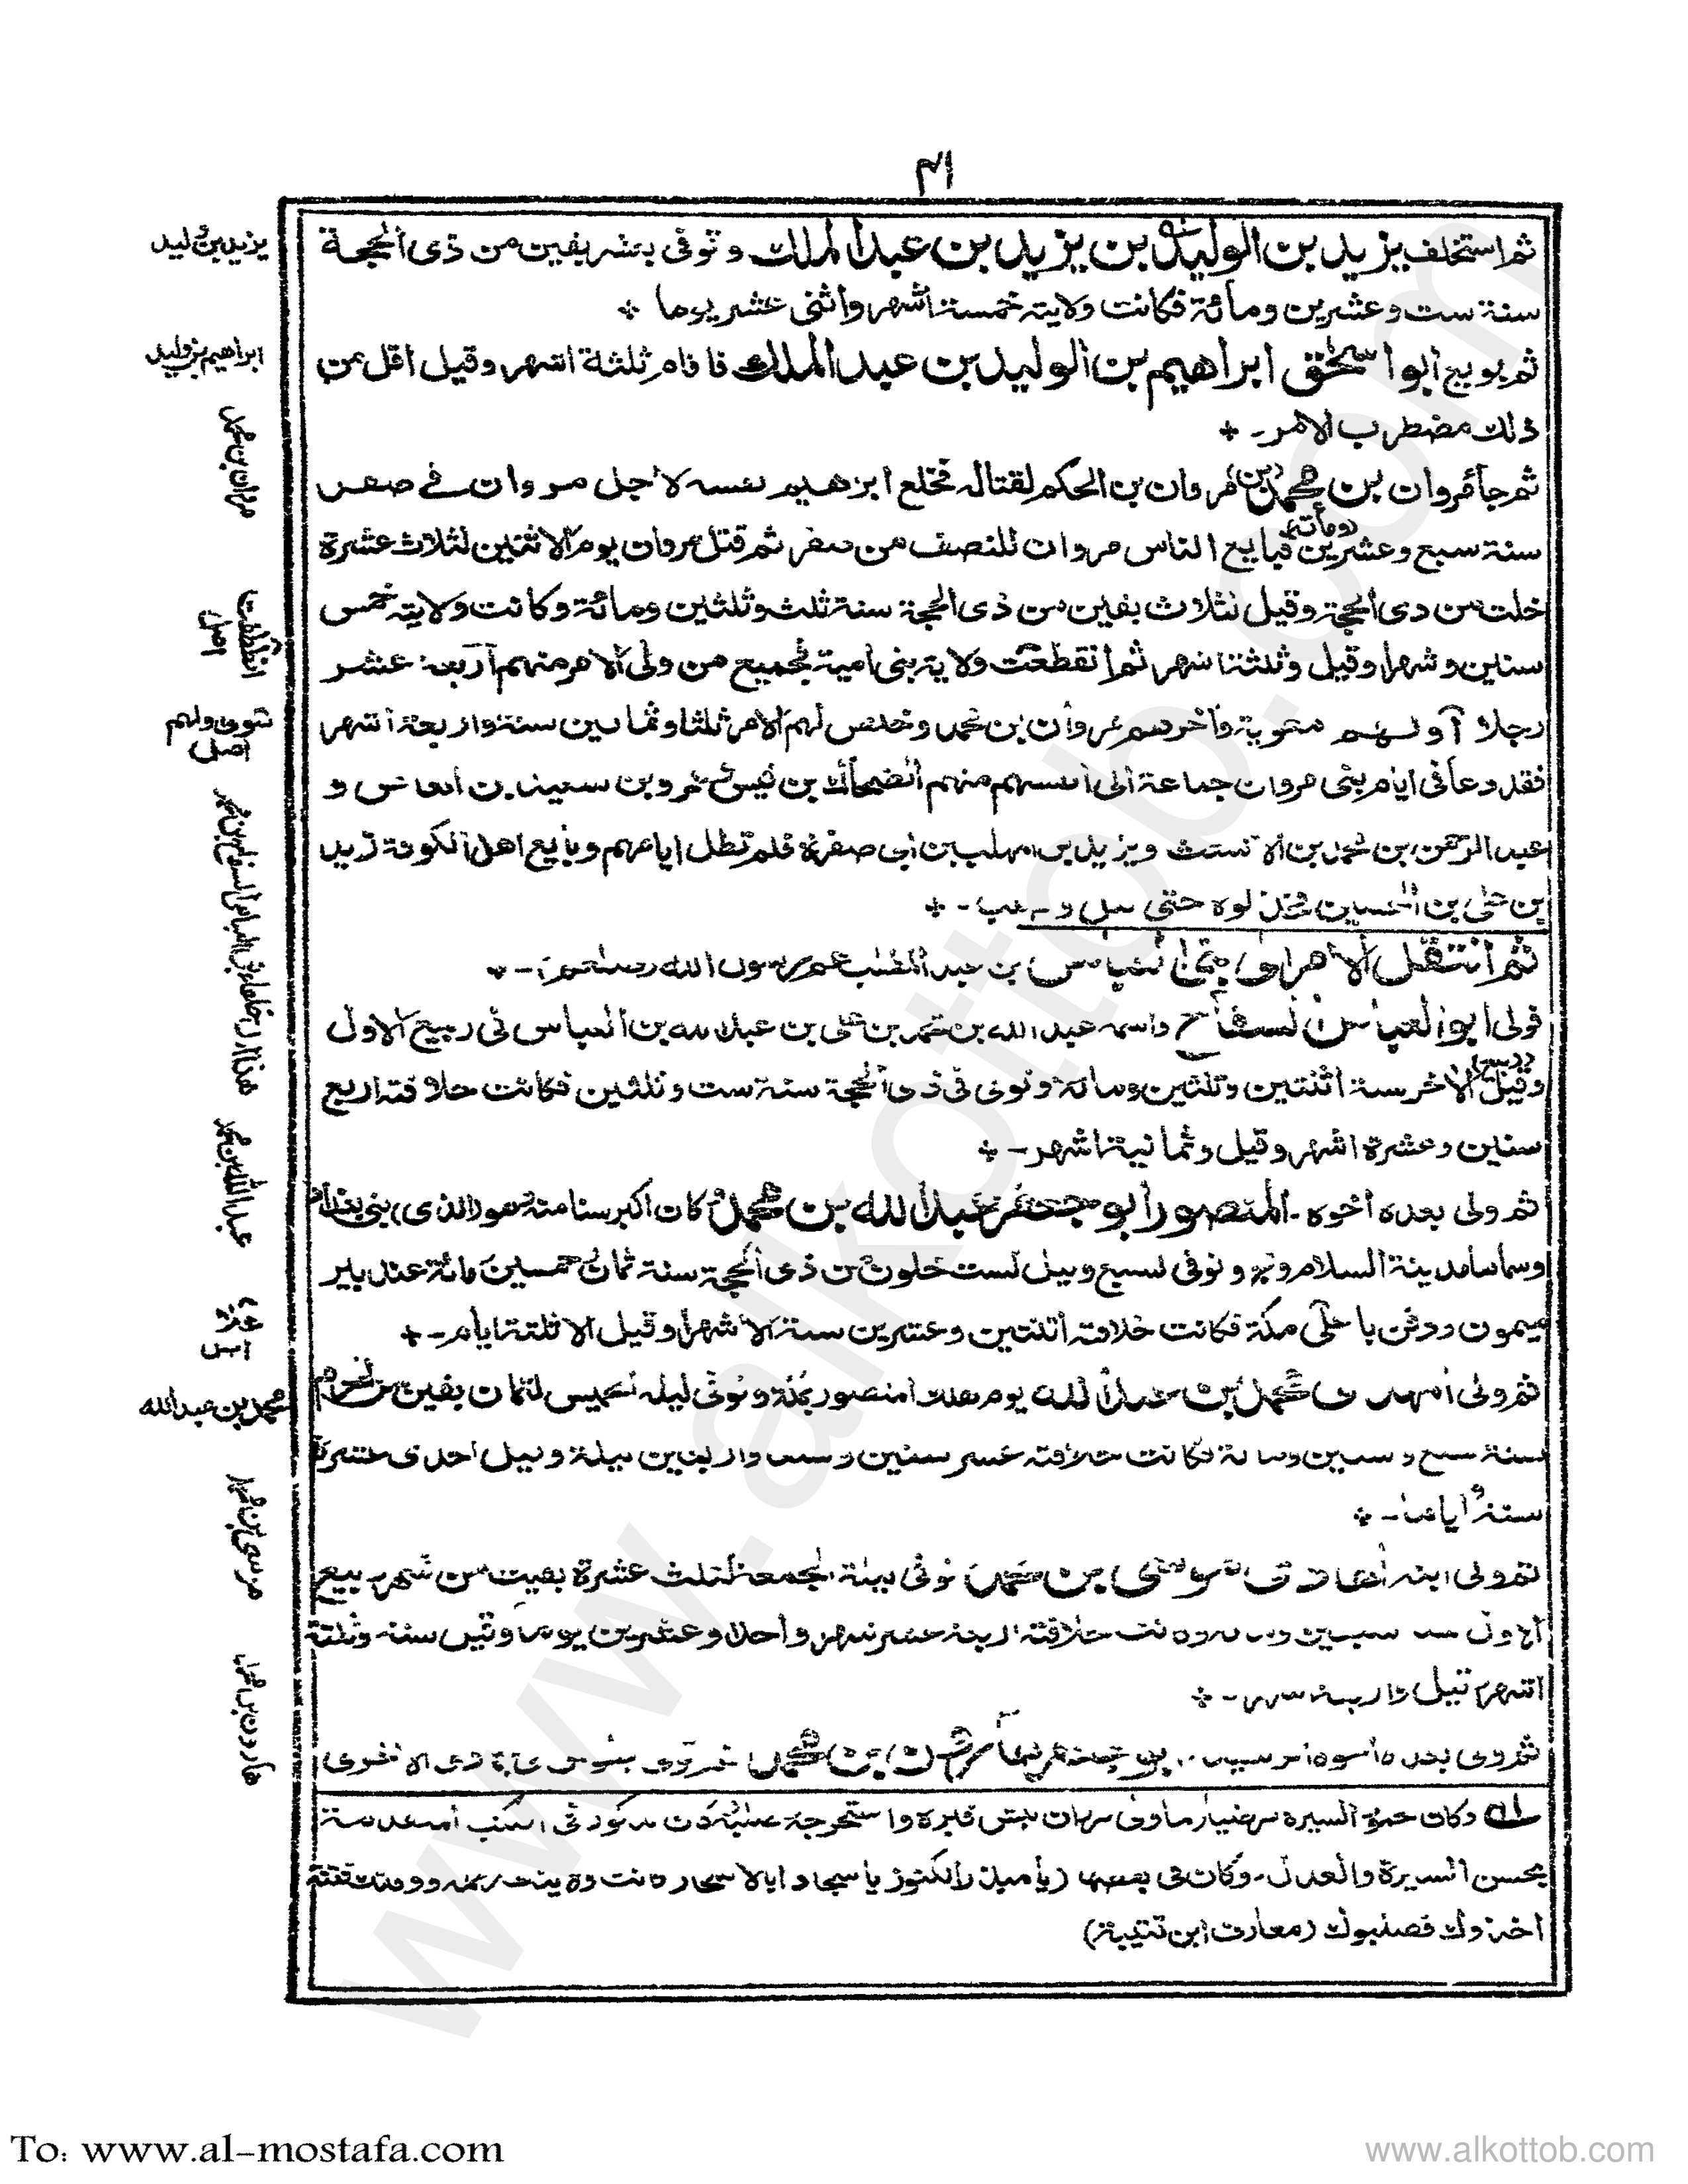 ٤١
ثم استخلف يزيد بن الوليد بن يزيد بن عبد الملك و توفى بعشر بقين من ذى الحجة
سنة ست و عشرين و مائة فكانت ولايته خمسة اشهر و اثنى عشر يوما ÷
ثم بويع ابو اسحٰق ابراهيم بن الوليد بن عبد الملك فاقام ثلثة اشهر و قيل اقل من
ذلك مضطرب الامر - ÷
ثم جاء مروان بن محمد (بن) مروان بن الحكم لقتاله فخلع ابرهيم نفسه لاجل مروان فى صفر
سنة سبع و عشرين (ومأته) فبايع الناس مروان للنصف من صفر ثم قتل مروان يوم الاثنين لثلاث عشرة
خلت من ذى الحجة و قيل لثلاث بقين من ذى الحجة سنة ثلث و ثلثين و مائة و كانت ولايته خمس
سنين و شهرا و قيل و ثلثة اشهر ثم انقطعت ولاية بنى امية فجميع من ولى الامر منهم اربعة عشر
رجلا اولهم معوية و اخرهم مروان بن محمد و خلص لهم الامر ثلثا و ثمانين سنة و اربعة اشهر
فقد دعا فى ايام بنى مروان جماعة الى انفسهم منهم الضحاك بن قيس و عمرو بن سعيد بن العاص و
عبد الرحمن بن محمد بن الاشعث و يزيد بن المهلب بن ابى صفرة فلم تطل ايامهم و بايع اهل الكوفة زيد
بن على بن الحسين فخذلوه حتى قتل و صلب - ÷
ثم انتقل الامر الى بنى العباس بن عبد المطلب عم رسول الله (صلعم) - ÷
فولى ابو العباس السفاح و اسمه عبد الله بن محمد بن على بن عبد الله بن العباس فى ربيع الاول
و قيل (ربيع) الاخر سنة اثنتين و ثلثين و مائة و توفى فى ذى الحجة سنة ست و ثلثين فكانت خلافته اربع
سنين و عشرة اشهر و قيل و ثمانية اشهر - ÷
ثم ولى بعده اخوه المنصور ابو جعفر عبد الله بن محمد كان اكبر سنا منه و هو (الذى) بنى بغداد
و سماها مدينة السلام و توفى لسبع و قيل لست خلون من ذى الحجة سنة ثمان خمسين مائة عند بير
ميمون و دفن با على مكة فكانت خلافته اثنتين و عشرين سنة الا شهرا و قيل الا ثلثة ايام - ÷
ثم ولى المهدى محمد بن عبد الله يوم هلك المنصور بمكة و توفى ليلة الخميس لثمان بقين من المحرم
سنة تسع و ستين و مائة فكانت خلافته عشر سنين و و اربعين ليلة و قيل احدى عشرة
سنة و اياما - ÷
ثم ولى ابنه الهادى موسى بن محمد توفى ليلة الجمعة لثلث عشرة بقيت من شهر ربيع
الاول سنة سبعين و كانت خلافته اربعة عشر شهر و احد و عشرين يوما و قيل سنة و ثلثة
اشهر و قيل و اربعة اشهر - ÷
ثم ولى بعده اخوه هارون بن محمد
و كان حسن السيرة و استخرجه
يحسن السيرة و العدل - و كان فى بعضها (يا مبذر الكنوز يا سجادا بالاسحار كانت
اخذوك فصلبوك (معارف ابن قتيبة)
يزيد بن وليد
ابراهيم بن وليد
مروان بن محمد
انقطعت
اصل
اصل
عبد الله بن محمد
محمد بن عبد الله
موسى بن محمد
هارون بن محمد
To: www.al-mostafa.com
www.alkottob.com
www.alkottob.com